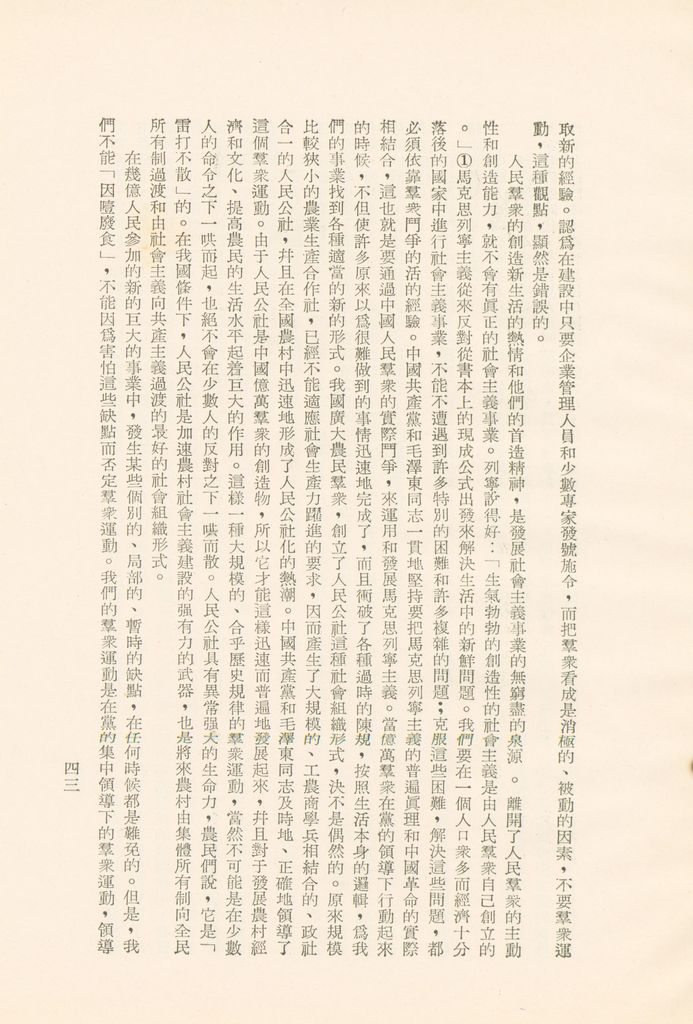 取新的經驗。認爲在建設中只要企業管理人員和少數專家發號施令，而把羣衆看成是消極的、被動的因素，不要羣衆運
動，這種觀點，顯然是錯誤的。
人民羣衆的創造新生活的熱情和他們的首造精神，是發展社會主義事業的無窮盡的泉源。離開了人民羣衆的主動
性和創造能力，就不會有眞正的社會主義事業。列寧說得好：「生氣勃勃的創造性的社會主義是由人民羣衆自己創立的
。」①馬克思列寧主義從來反對從書本上的現成公式出發來解決生活中的新鮮問題。我們要在一個人口衆多而經濟十分
落後的國家中進行社會主義事業，不能不遭遇到許多特別的困難和許多複雜的問題；克服這些困難，解決這些問題，都
必須依靠羣衆鬥爭的活的經驗。中國共產黨和毛澤東同志一貫地堅持要把馬克思列寧主義的普遍眞理和中國革命的實際
相結合，這也就是要通過中國人民羣衆的實際鬥爭，來運用和發展馬克思列寧主義。當億萬羣衆在黨的領導下行動起來
的時候，不但使許多原來以爲很難做到的事情迅速地完成了，而且衝破了各種過時的陳規，按照生活本身的邏輯，爲我
們的事業找到各種適當的新的形式。我國廣大農民羣衆，創立了人民公社這種社會組織形式，決不是偶然的。原來規模
比較狹小的農業生產合作社，已經不能適應社會生產力躍進的要求，因而產生了大規模的、工農商學兵相結合的、政社
合一的人民公社，幷且在全國農村中迅速地形成了人民公社化的熱潮。中國共產黨和毛澤東同志及時地、正確地領導了
這個羣衆運動。由于人民公社是中國億萬羣衆的創造物，所以它才能這樣迅速而普遍地發展起來，幷且對于發展農村經
濟和文化、提高農民的生活水平起着巨大的作用。這樣一種大規模的、合乎歷史規律的羣衆運動，當然不可能是在少數
人的命令之下一哄而起，也絕不會在少數人的反對之下一哄而散。人民公社具有異常强大的生命力，農民們說，它是「
雷打不散」的。在我國條件下，人民公社是加速農村社會主義建設的强有力的武器，也是將來農村由集體所有制向全民
所有制過渡和由社會主義向共產主義過渡的最好的社會組織形式。
在幾億人民參加的新的巨大的事業中，發生某些個別的、局部的、暫時的缺點，在任何時候都是難免的。但是，我
們不能「因噎廢食」，不能因爲害怕這些缺點而否定羣衆運動。我們的羣衆運動是在黨的集中領導下的羣衆運動，領導
四三